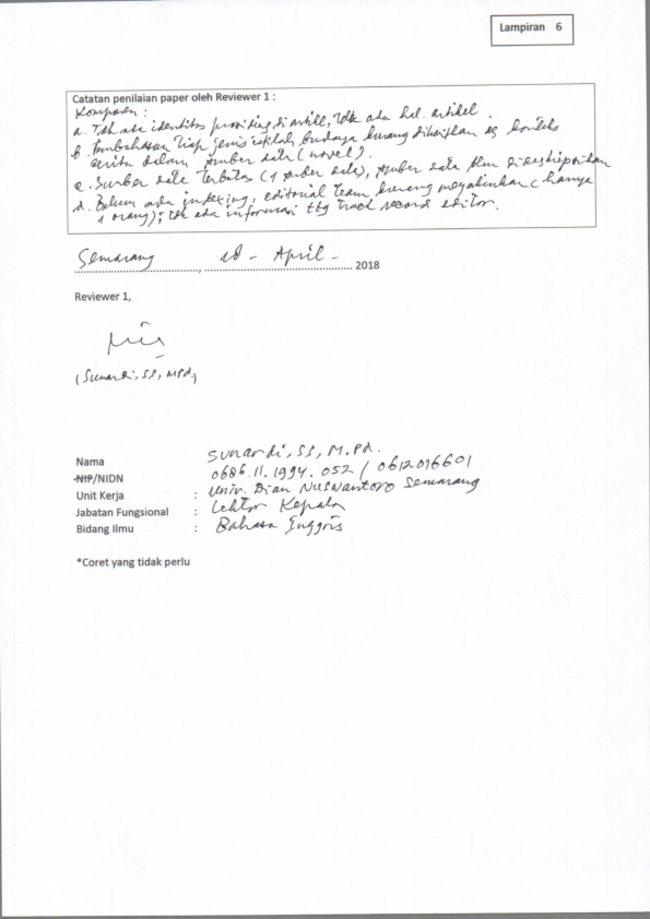 Lampiran 6
Catatan penilaian paper oleh Reviewer 1 :
Komponen :
a. Tdk ada identitas prosiding di artikel, tdk ada hal. artikel.
b. Pembahasan tiap jenis istilah budaya kurang dikaitkan dg konteks
cerita dalam sumber data (novel).
c. Sumber data terbatas (1 sumber data), sumber data blm dideskripsikan
d. Belum ada indexing, editorial team kurang meyakinkan (hanya
1 orang); tdk ada informasi ttg track record editor.
Semarang, 18 - April - 2018
Reviewer 1,
(Sunardi, SS, MPd.)
Nama Sunardi, SS, M.Pd.
NIP/NIDN 0686.11.1994.052 / 0612016601
Unit Kerja : Univ. Dian Nuswantoro Semarang
Jabatan Fungsional : Lektor Kepala
Bidang Ilmu : Bahasa Inggris
*Coret yang tidak perlu